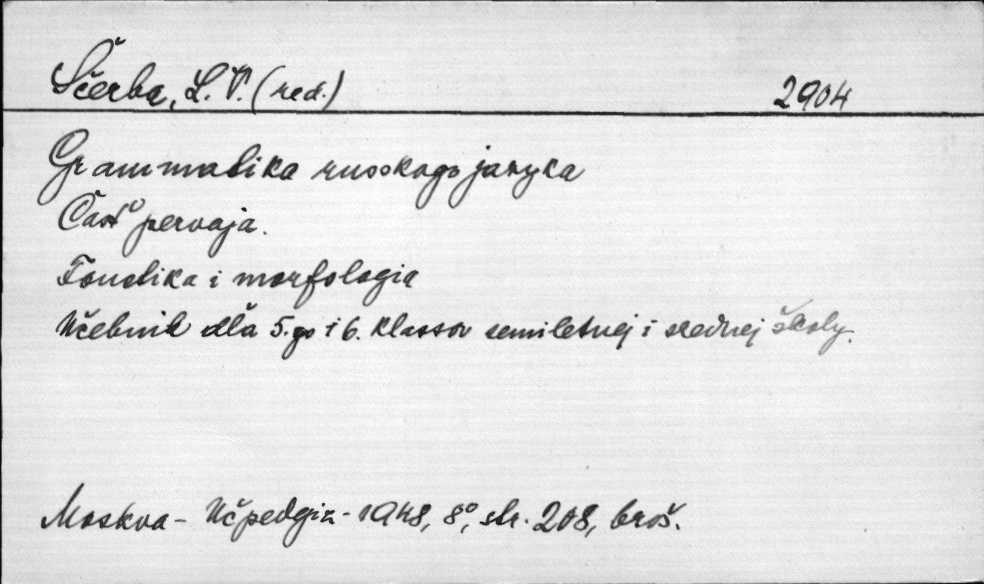 Ščerba, L. V. (red.) 2904
Grammatika russkago jazyka
Čast' pervaja.
Fonetika i morfologia
Učebnik dla 5.go i 6. klassov semiletnej i srednej školy.
Moskva - Učpedgiz - 1948, 8°, str. 208, broš.